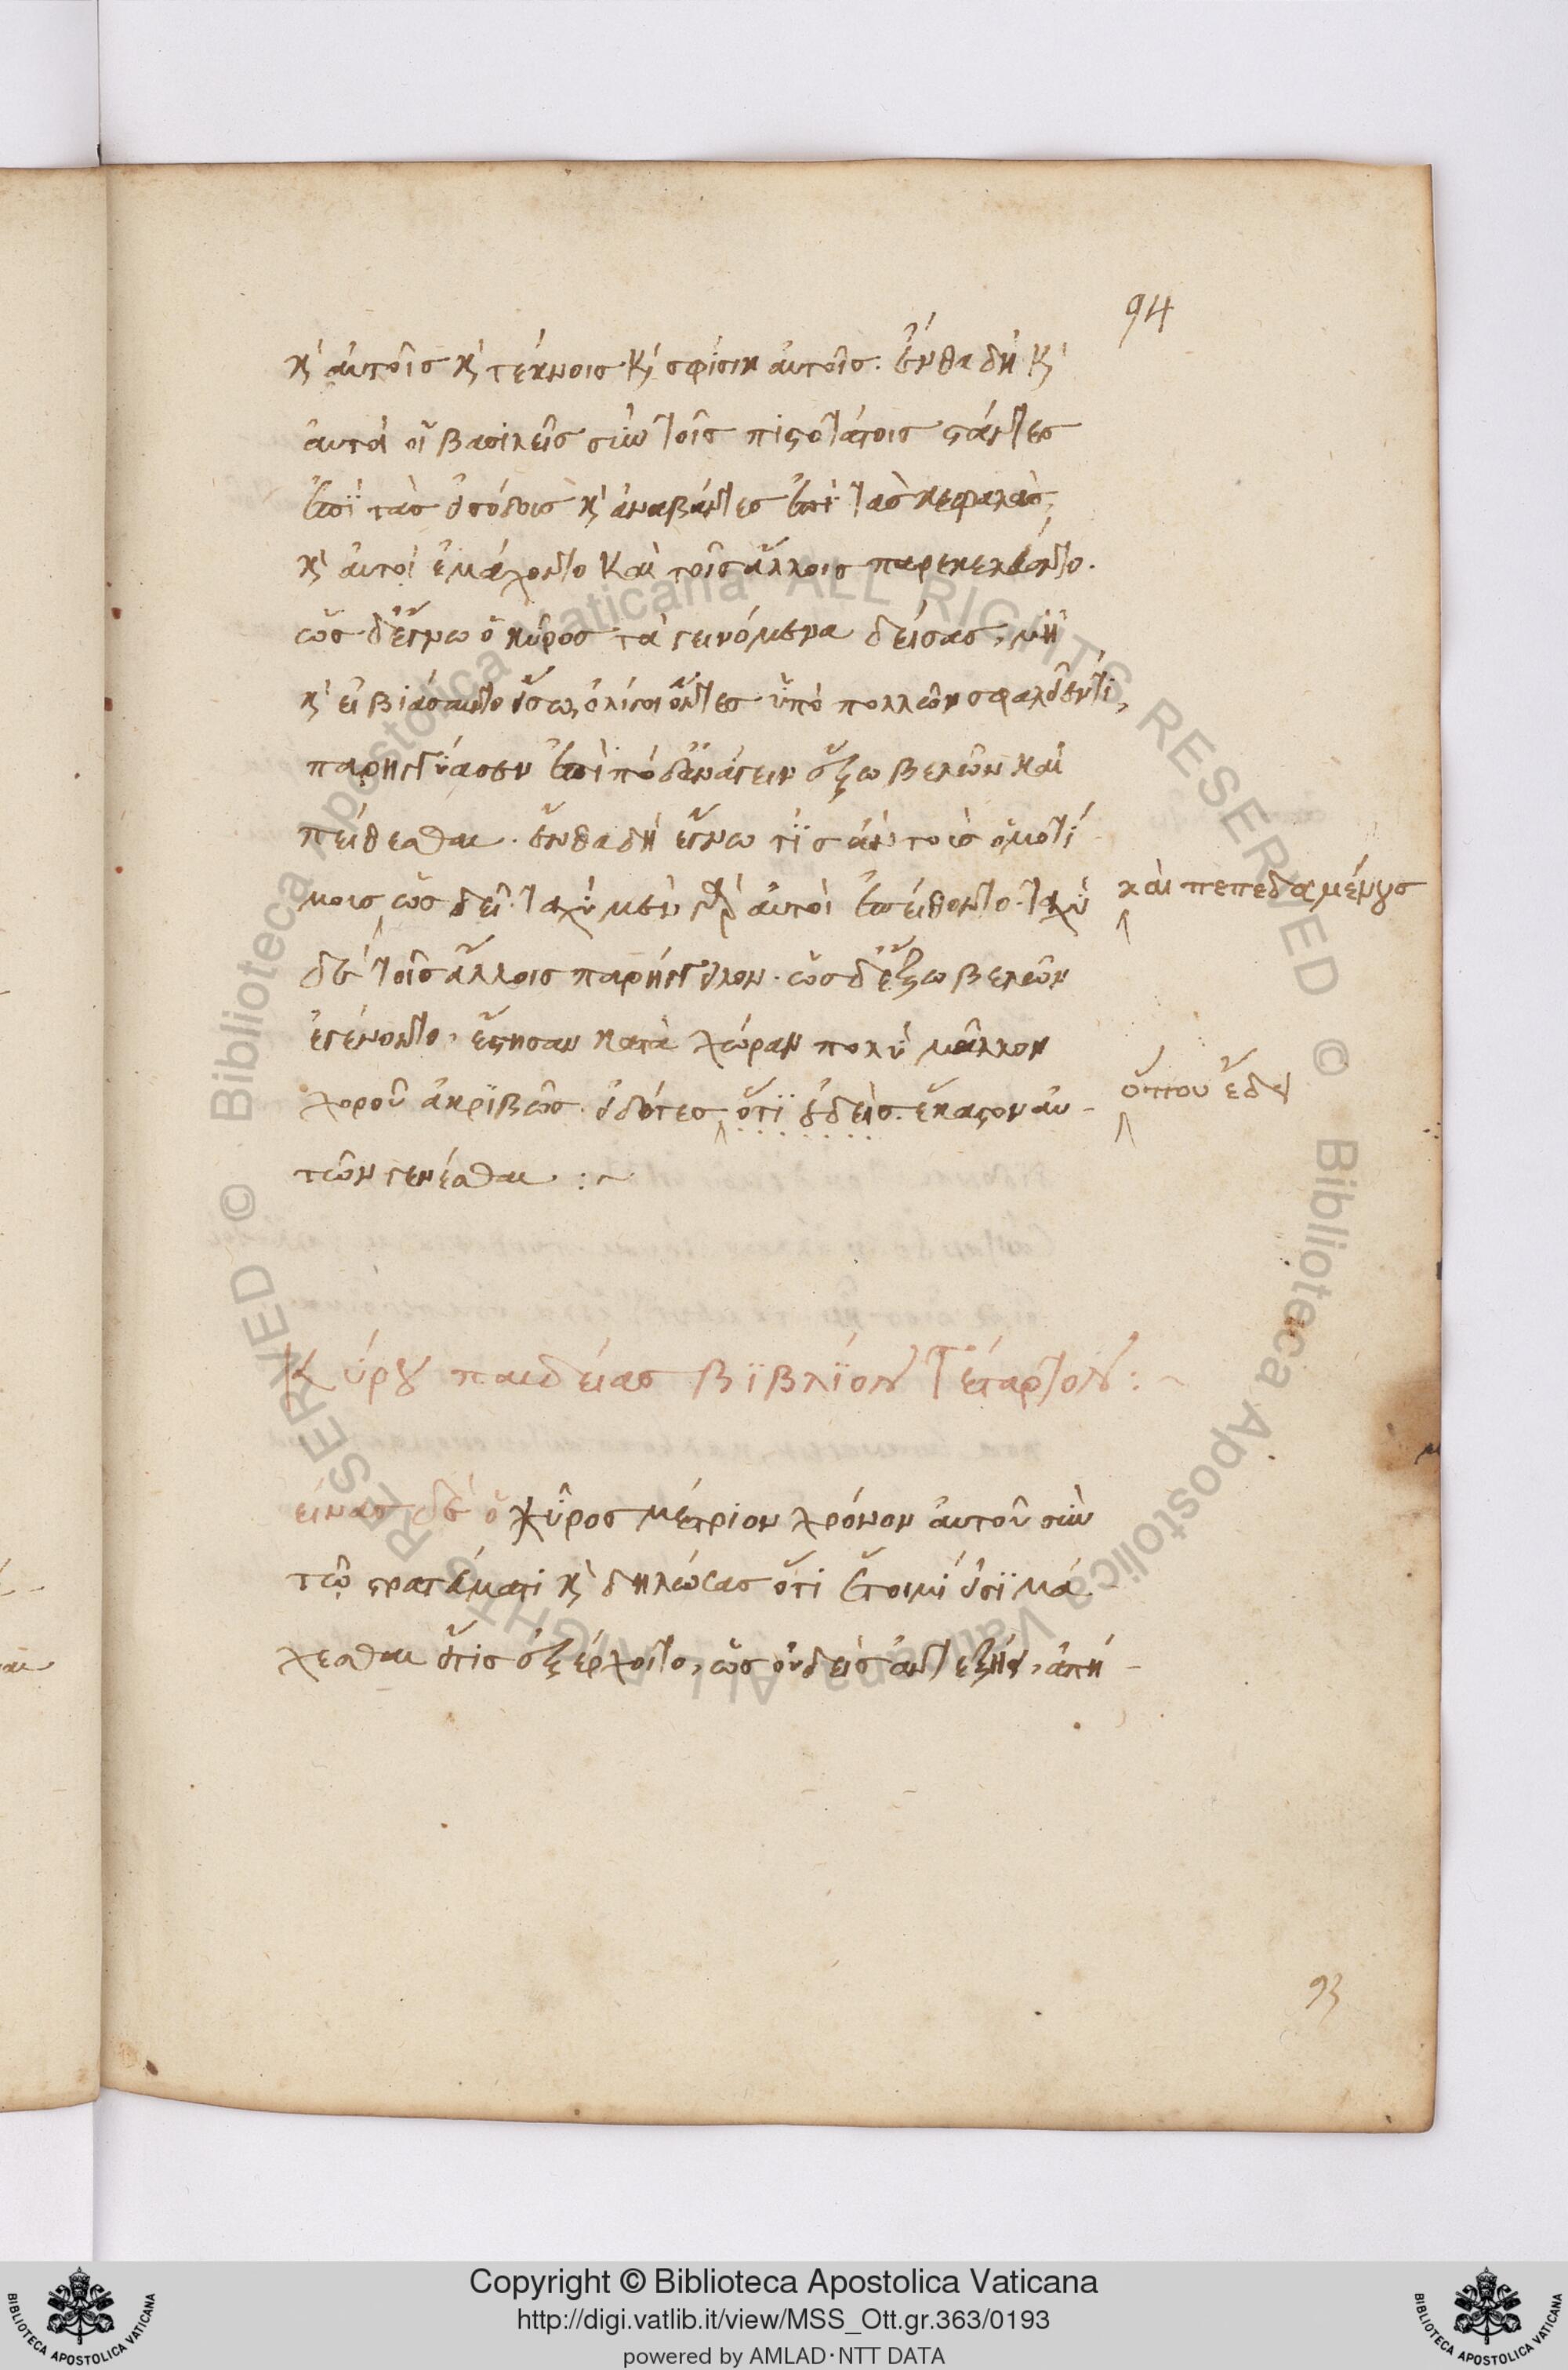 94
κὶ αὐτοῖς κὶ τέκνοις κὶ σφίσιν αὐτοῖς. ἔνθα δὴ κὶ
αὐτὰ οἱ βασιλεῖς σὺν τοῖς πιστοτάτοις στάντες
ἐπὶ τὰς εἰσόδους κὶ ἀναβάντες ἐπὶ τὰς κεφαλὰς,
κὶ αὐτοὶ ἐμάχοντο καὶ τοῖς ἄλλοις παρεκελεύοντο.
ὡς δ' ἔγνω ὁ κῦρος τὰ γινόμενα δείσας, μὴ
κὶ εἰ βιάσαιντο εἴσω, ὀλίγοι ὄντες ὑπὸ πολλῶν σφαλεῖέν τι,
παρηγγύασεν ἐπὶ πόδ' ἀνάγειν ἔξω βελῶν καὶ
πείθεσθαι. ἔνθα δὴ ἔγνω τὶς ἂν τοὺς ὁμοτί-
μους ὡς δεῖ. ταχὺ μὲν γὰρ αὐτοὶ ἐπείθοντο. ταχὺ
καὶ πεπεδαμένους
δὲ τοῖς ἄλλοις παρήγγελον. ὡς δ' ἔξω βελῶν
ἐγένοντο, ἔστησαν κατὰ χώραν πολὺ μᾶλλον
χοροῦ ἀκριβῶς εἰδότες ὅτι οὐδεὶς. ἕκαστον αὐ-
ὅπου ἔδει
τῶν γενέσθαι :~
Κύρου παιδείας βιβλίον τέταρτον :~
είνας δὲ ὁ κῦρος μέτριον χρόνον αὐτοῦ σὺν
τῷ στρατεύματι κὶ δηλώσας ὅτι ἕτοιμοί εἰσι μά-
χεσθαι εἴ τις ἐξέρχοιτο, ὡς οὐδεὶς ἀντεξῄει, ἀπή-
93
Copyright © Biblioteca Apostolica Vaticana
http://digi.vatlib.it/view/MSS_Ott.gr.363/0193
powered by AMLAD·NTT DATA